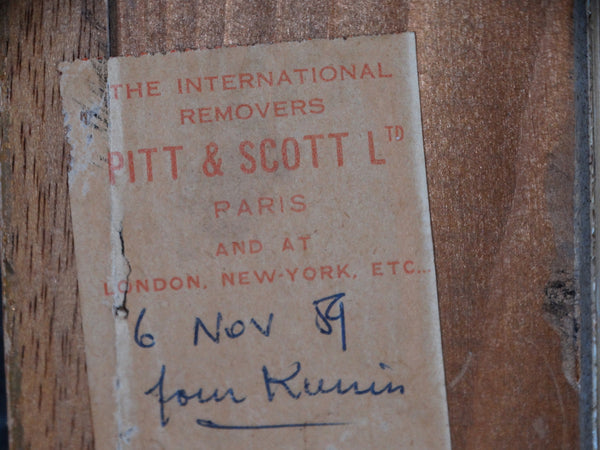 THE INTERNATIONAL
REMOVERS
PITT & SCOTT LTD
PARIS
AND AT
LONDON, NEW-YORK, ETC...
6 Nov 59